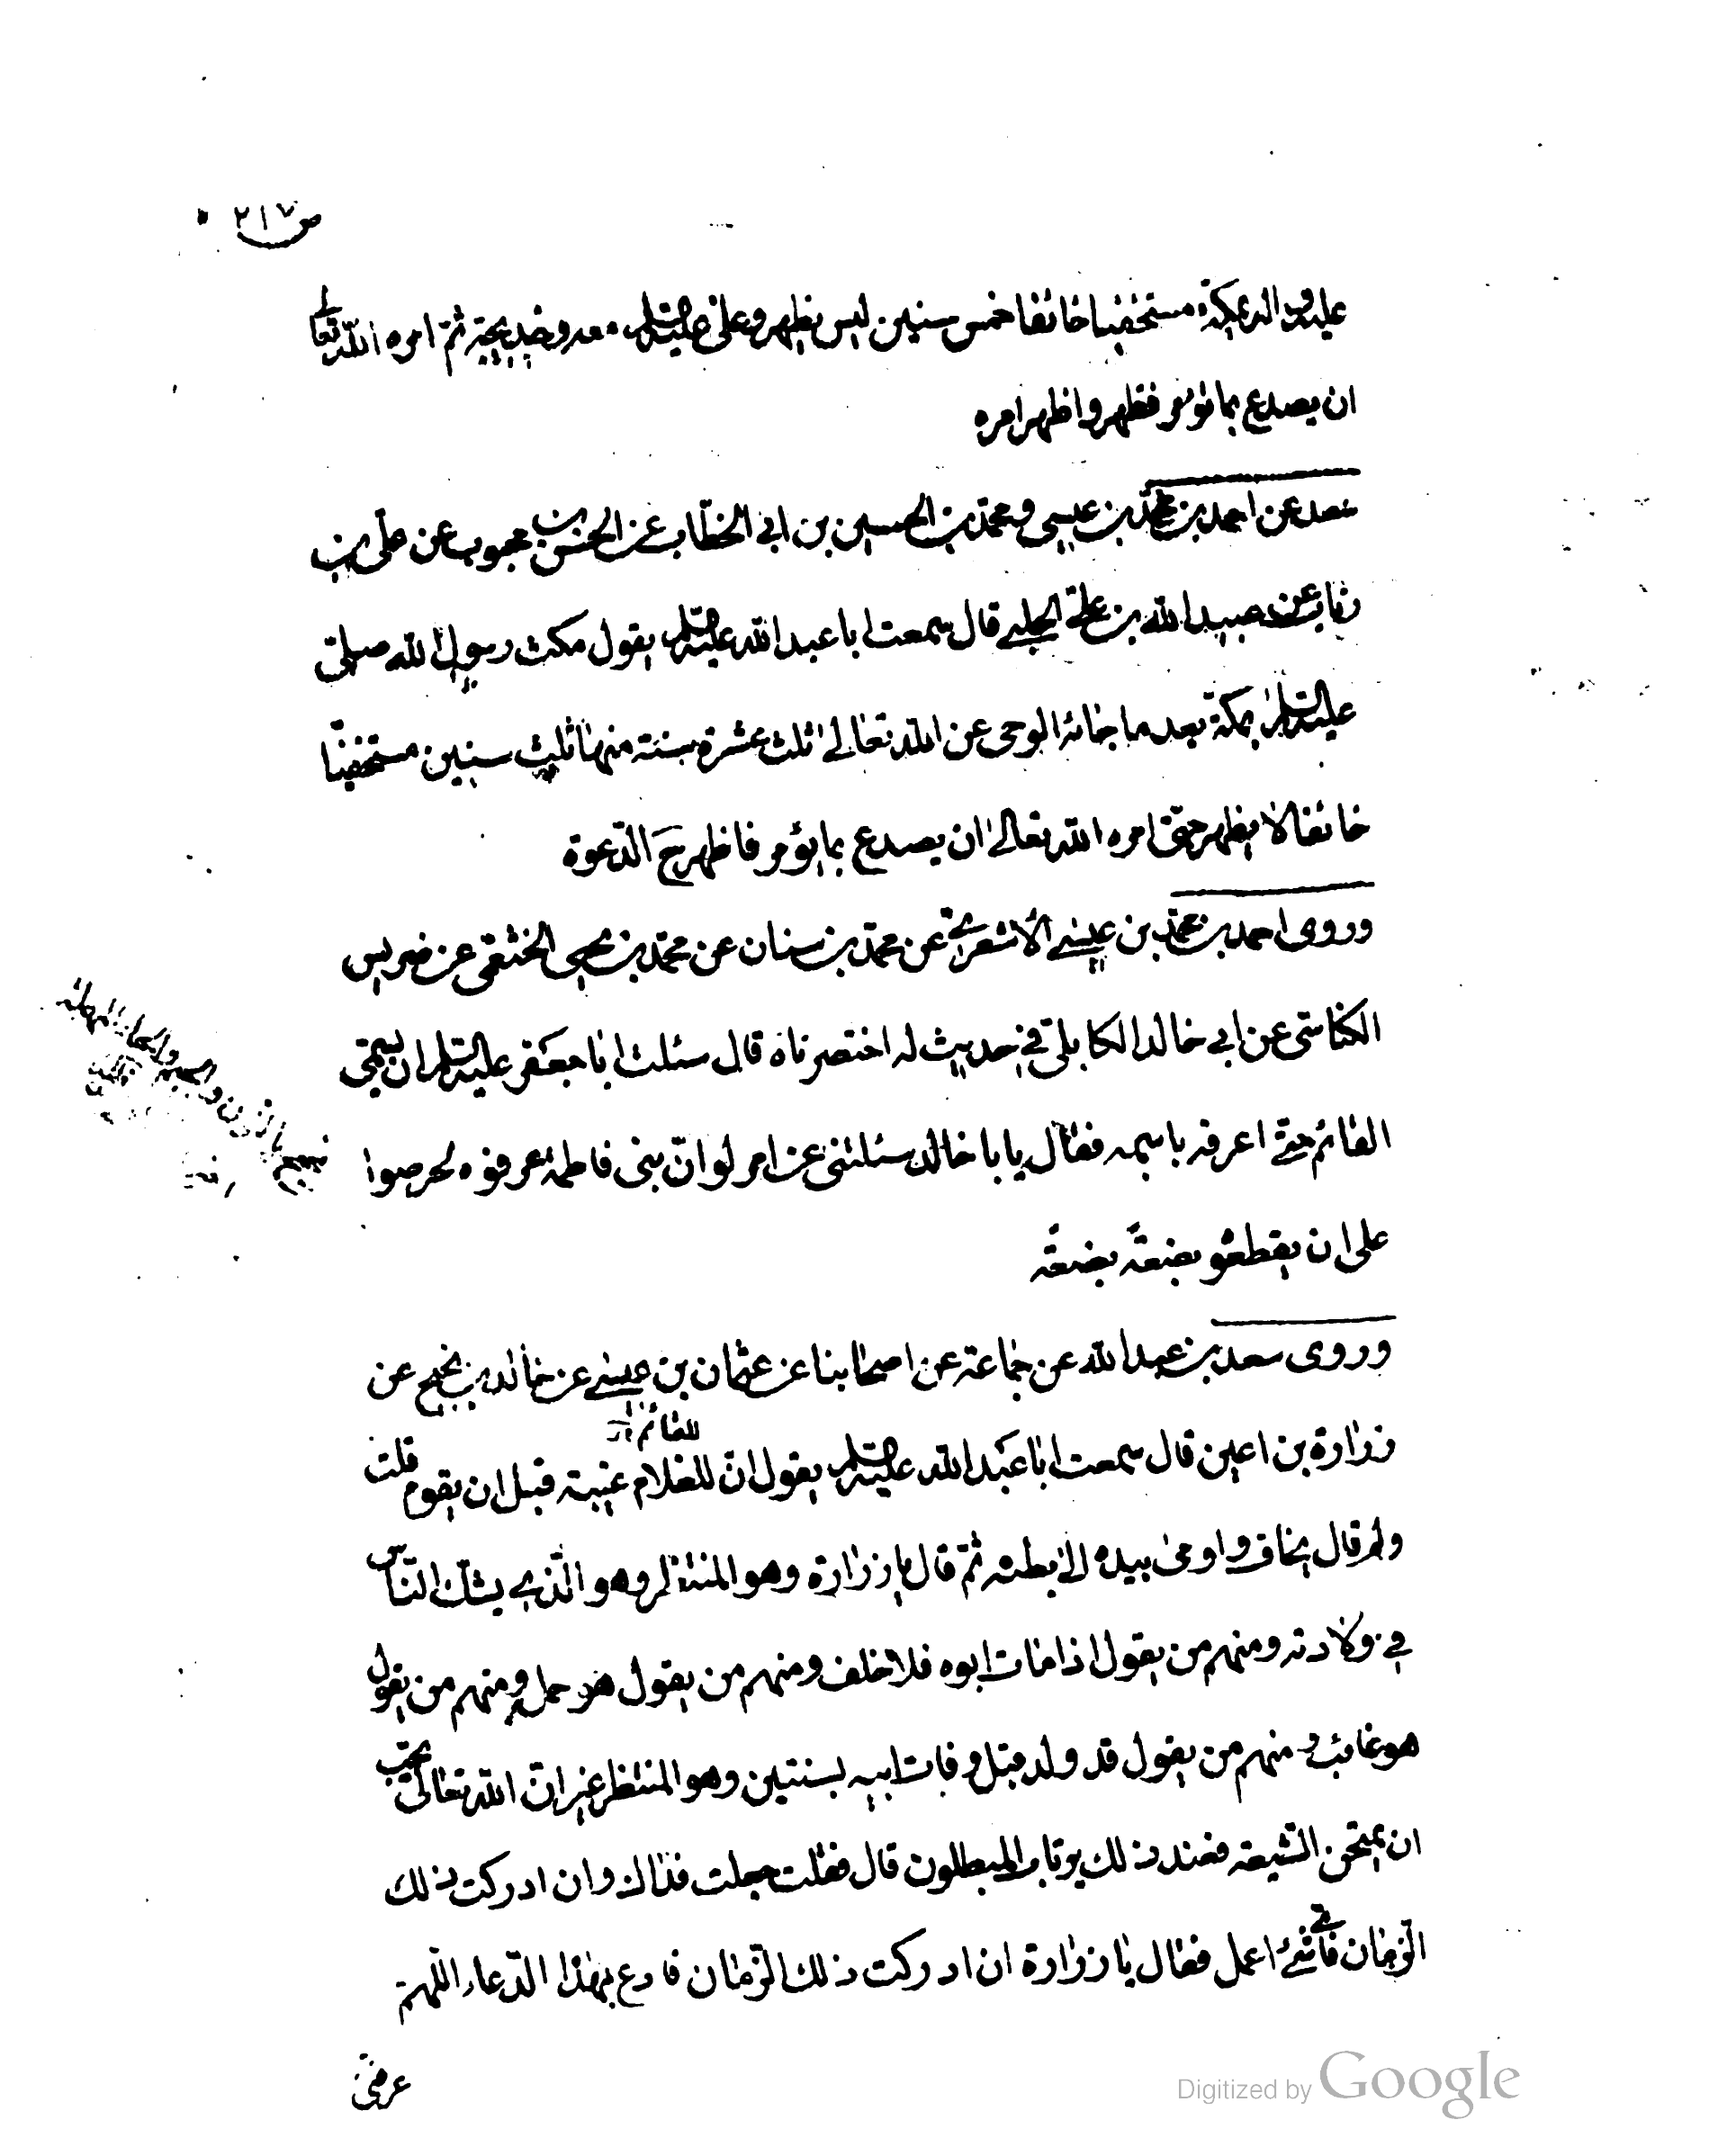 ص ٢١٧
عليه واله بمكة مستخفيا خائفا خمس سنين ليس يظهر وعلى عليه السلم معه وخديجة ثم امره الله تعالى
ان يصدع بما يؤمر فظهر واظهر امره
سعد عن احمد بن محمد بن عيسى ومحمد بن الحسين بن ابي الخطاب عن الحسن بن محبوب عن على بن
رئاب عن عبيد الله بن على الحلبي قال سمعت ابا عبد الله عليه السلم يقول مكث رسول الله صلى
عليه السلم بمكة بعد ما جائه الوحى عن الله تعالى ثلث عشرة سنة منها ثلث سنين مستخفيا
خائفا لا يظهر حتى امره الله تعالى ان يصدع بما يؤمر فاظهر ح الدعوة
وروى احمد بن محمد بن عيسى الاشعري عن محمد بن سنان عن محمد بن يحيى الخثعمى عن ضريس
الكناسى عن ابي خالد الكابلى في حديث له اختصرناه قال سئلت ابا جعفر عليه السلم ان يسمى
القائم حتى اعرفه باسمه فقال يا با خالد سئلتنى عن امر لو ان بنى فاطمة عرفوه لحرصوا
على ان يقطعوه بضعة بضعة
وروى سعد بن عبد الله عن جماعة عن اصحابنا عن عثمان بن عيسى عن خالد بن نجيح عن
للقائم
زرارة بن اعين قال سمعت ابا عبد الله عليه السلم يقول ان للغلام غيبة قبل ان يقوم قلت
ولم قال يخاف واومى بيده الى بطنه ثم قال يا زرارة وهو المنتظر وهو الذي يشك الناس
في ولادته ومنهم من يقول اذا مات ابوه فلا خلف ومنهم من يقول هو حمل ومنهم من يقول
هو غائب ومنهم من يقول قد ولد قبل وفات ابيه بسنتين وهو المنتظر غير ان الله تعالى يحب
ان يمتحن الشيعة فعند ذلك يرتاب المبطلون قال فقلت جعلت فداك وان ادركت ذلك
الزمان فاي شئ اعمل فقال يا زرارة ان ادركت ذلك الزمان فادع بهذا الدعاء اللهم
عرفنى
Digitized by Google